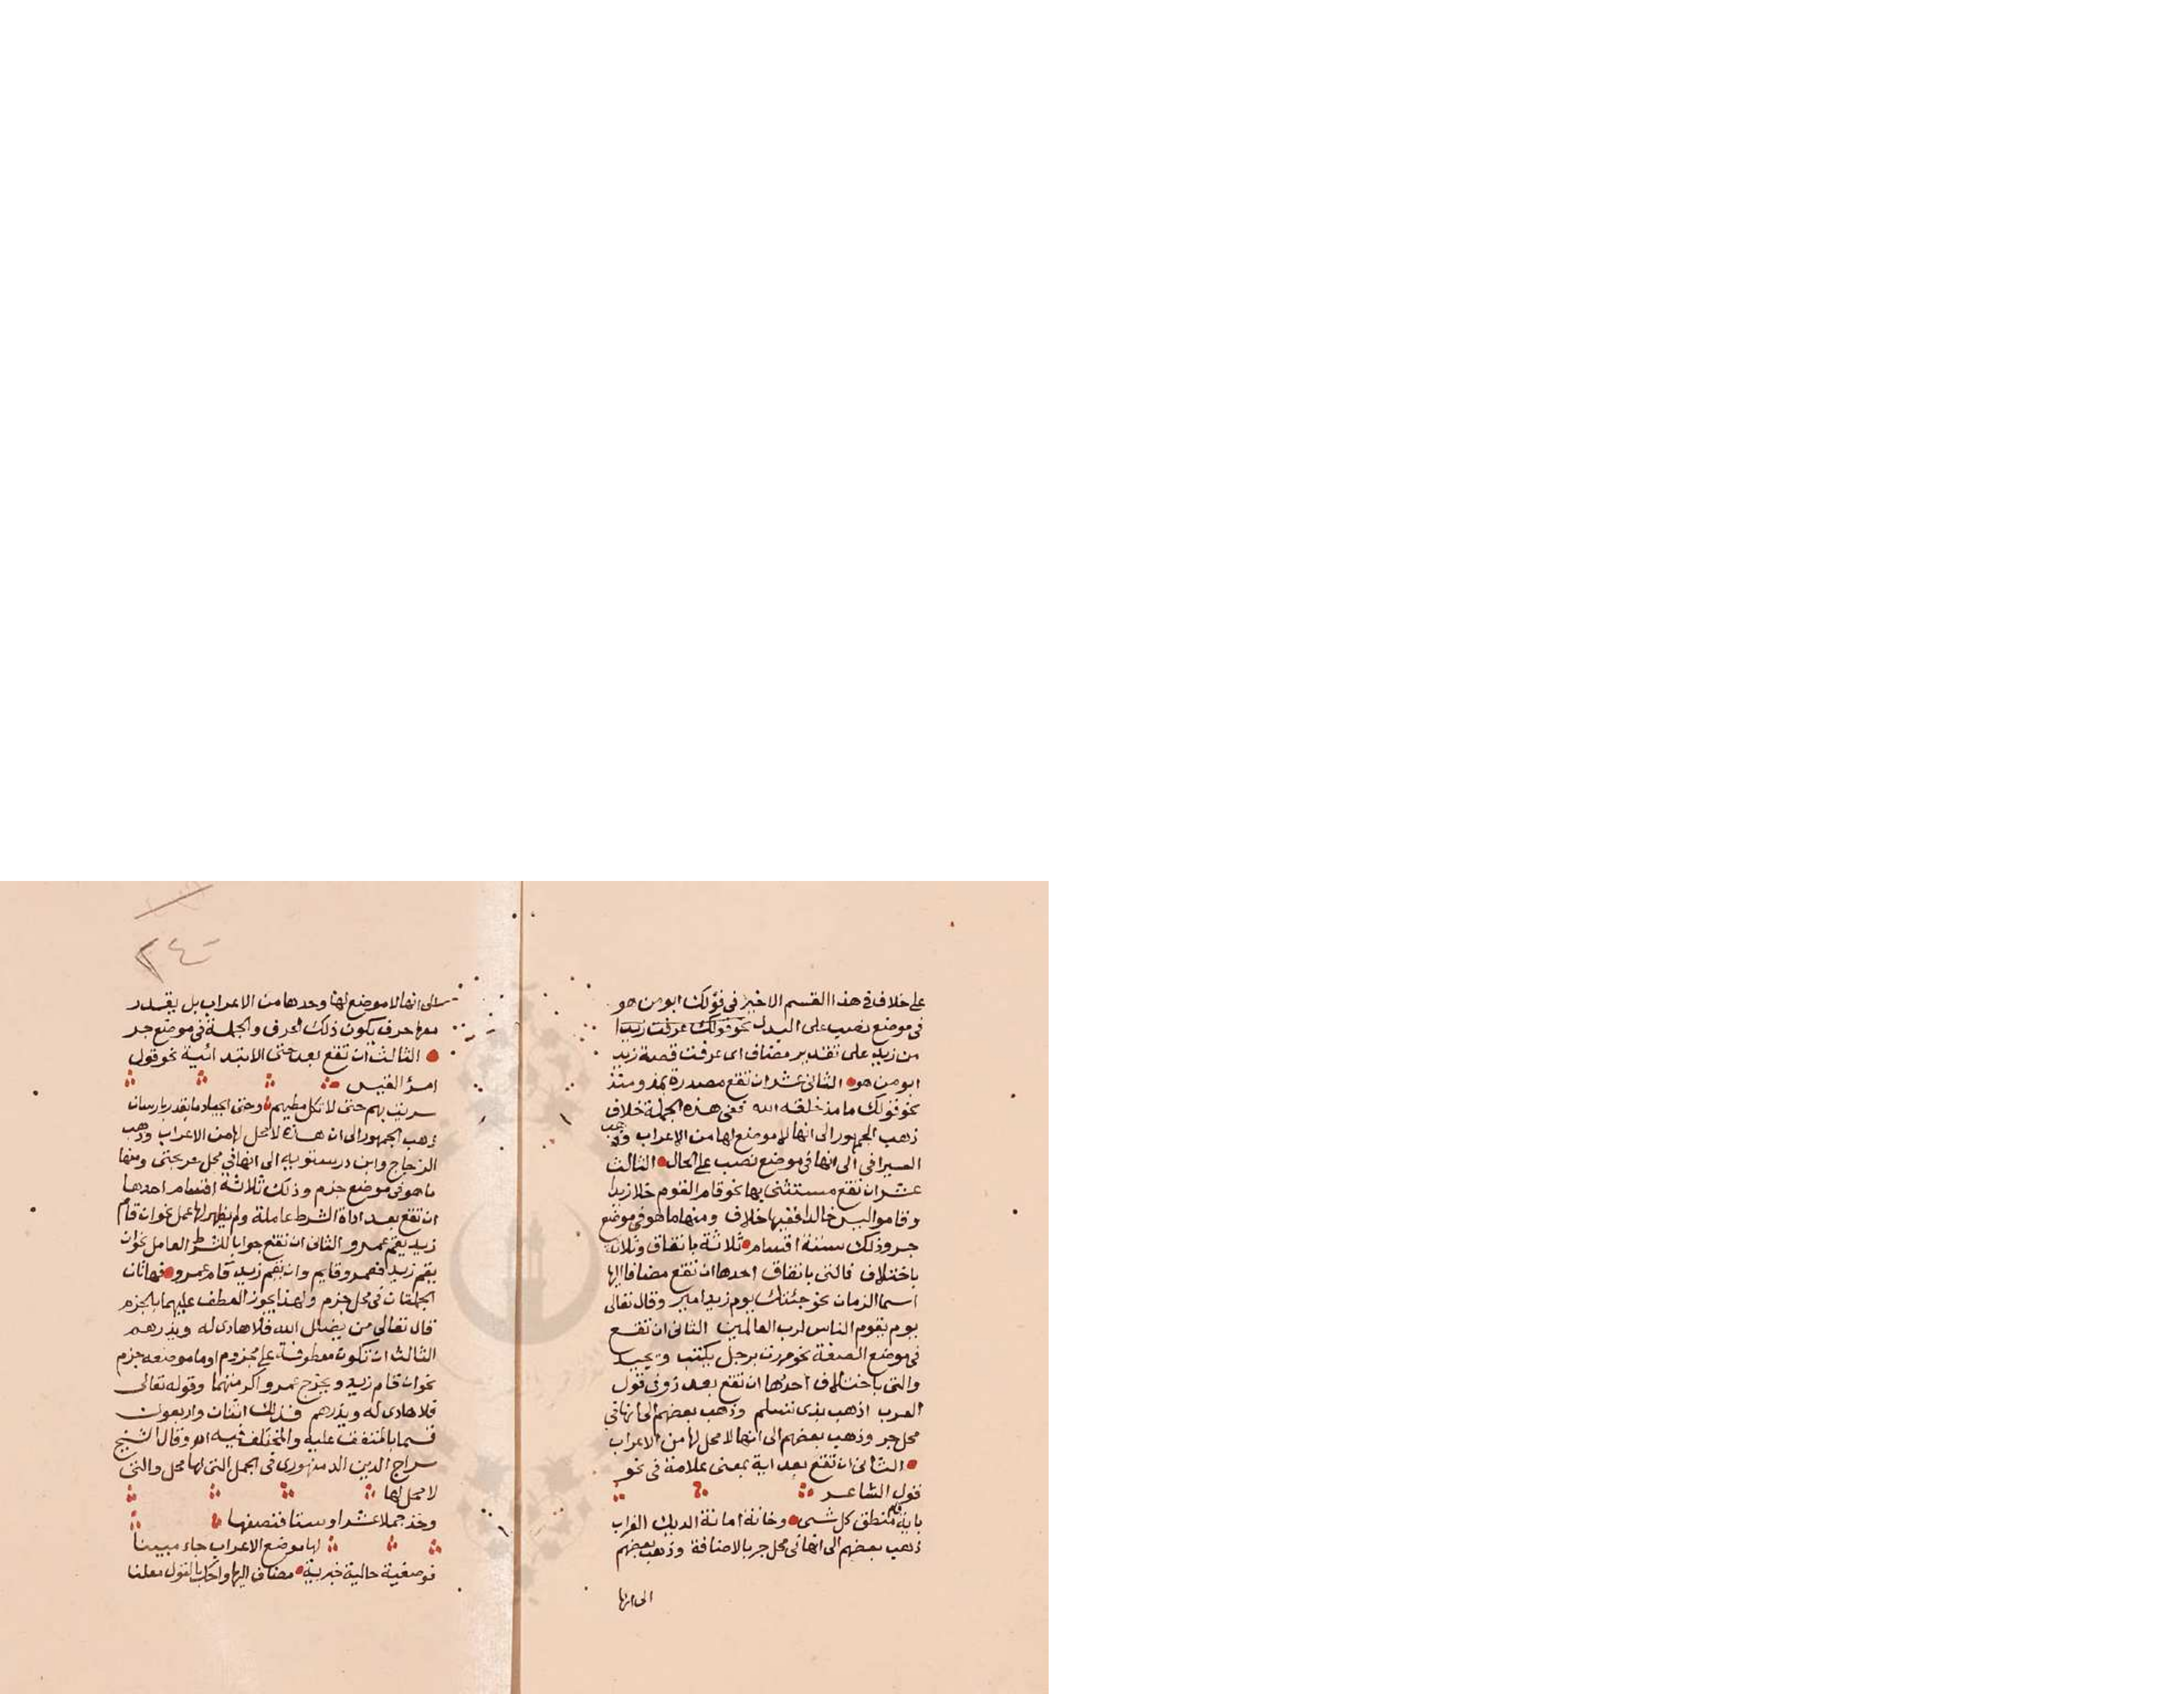 على خلاف في هذا القسم الاخير في قولك ابو من هو
في موضع نصب على البدل نحو قولك عرفت زيدا
من زيد على تقدير مضاف اى عرفت قصة زيد
ابو من هو الثانى عشر ان تقع مصدرة بمذ ومنذ
نحو قولك ما مذ خلقه الله ففى هذه الجملة خلاف
ذهب الجمهور الى انها لا موضع لها من الاعراب وذهب
السيرافي الى انها في موضع نصب على الحال الثالث
عشر ان تقع مستثنى بها نحو قام القوم خلا زيدا
وقاموا ليس خالدا ففيها خلاف ومنها ما هو في موضع
جر وذلك ستة اقسام ثلاثة باتفاق وثلاثة
باختلاف فالتى باتفاق احدها ان تقع مضافا اليها
اسما الزمان نحو جئتك يوم زيد امير وقال تعالى
يوم يقوم الناس لرب العالمين الثانى ان تقع
في موضع الصفة نحو مررت برجل يكتب ويجيد
والتى باختلاف احدها ان تقع بعد ذوفى قول
العرب اذهب بذى تسلم وذهب بعضهم الى انها في
محل جر وذهب بعضهم الى انها لا محل لها من الاعراب
الثانى ان تقع بعد اية بمعنى علامة في نحو
قول الشاعر
باية قام منطق كل شى وخانة امانة الديك الغراب
ذهب بعضهم الى انها في محل جر بالاضافة وذهب بعضهم
الى انها
الى انها لا موضع لها وحدها من الاعراب بل يقدر
معها حرف يكون ذلك الحرف والجملة في موضع جر
الثالث ان تقع بعد حتى الابتدائية نحو قول
امرؤ القيس
سريت بهم حتى لا تكل مطيهم وحتى الجياد ما يقدن بارسان
ذهب الجمهور الى ان هذه لا محل لها من الاعراب وذهب
الزجاج وابن درستويه الى انها في محل جر بحتى ومنها
ما هو في موضع جزم وذلك ثلاثة اقسام احدها
ان تقع بعد اداة الشرط عاملة ولم يظهر لها عمل نحو ان قام
زيد يقم عمرو الثانى ان تقع جوابا للشرط العامل نحو ان
يقم زيد فعمرو قايم وان يقم زيد قام عمرو فهاتان
الجملتان في محل جزم ولهذا يجوز العطف عليهما بالجزم
قال تعالى من يضلل الله فلا هادى له ويذرهم
الثالث ان تكون معطوفة على مجزوم او ما موضعه جزم
نحو ان قام زيد ويخرج عمرو اكرمتهما وقوله تعالى
فلا هادى له ويذرهم فذلك اثنان واربعون
قسما بالمتفق عليه والمختلف فيه اه وقال الشيخ
سراج الدين الدمنهورى في الجمل التى لها محل والتى
لا محل لها
وخذ جملا عشرا وستا فنصفها
لها موضع الاعراب جاء مبينا
فوصفية حالية خبرية مضاف اليها واحك بالقول معلنا